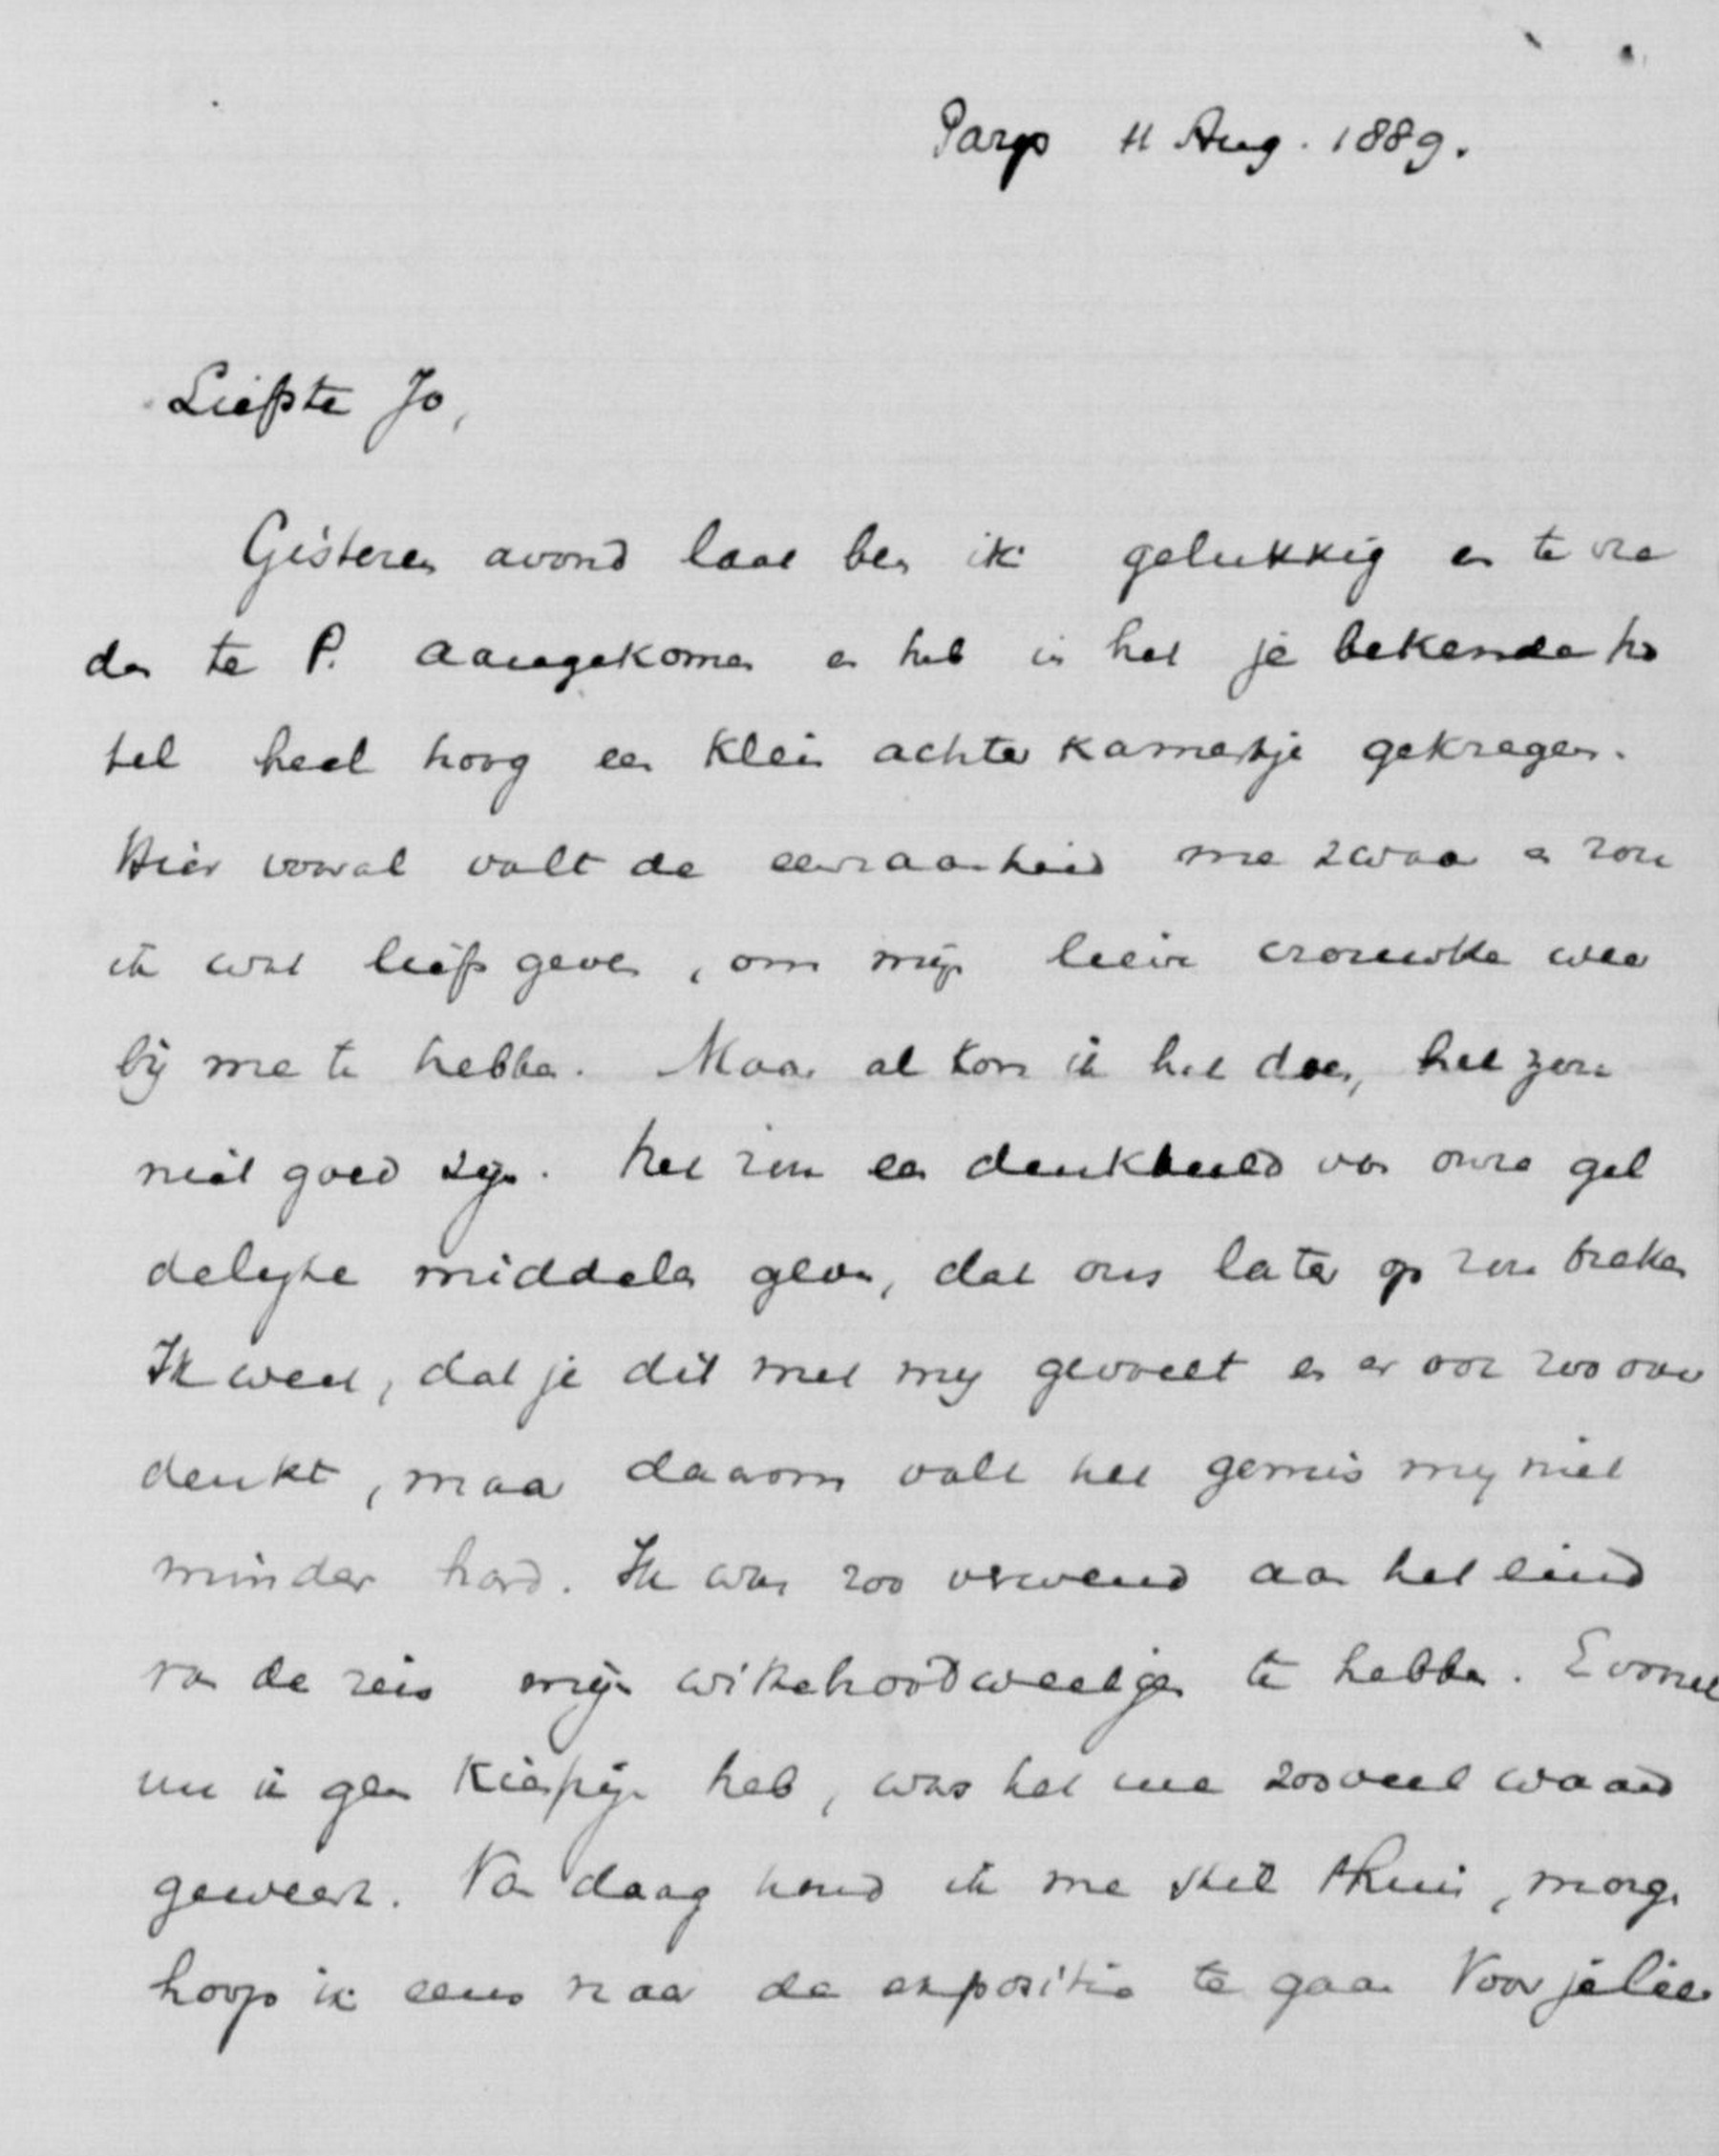 Parijs 11 Aug. 1889.
Liefste Jo,
Gisteren avond laat ben ik gelukkig en tevre
den te P. aangekomen en heb in het je bekende ho
tel heel hoog een klein achterkamertje gekregen.
Hier vooral valt de eenzaamheid me zwaar en zou
ik wat liefs geven, om mijn lieve vrouwtke weer
bij me te hebben. Maar al kon ik het doen, het zou
niet goed zijn. Het zou een denkbeeld van onze gel
delijke middelen geven, dat ons later op zou breken
Ik weet, dat je dit met mij gevoelt en er ook zoo over
denkt, maar daarom valt het gemis mij niet
minder hard. Ik was zoo verwend aan het eind
van de reis mijn te hebben. Evenwel
nu ik geen heb, was het me zooveel waard
geweest. Van daag houd ik me stil thuis, morgen
hoop ik eens naar de expositie te gaan Voor jelie